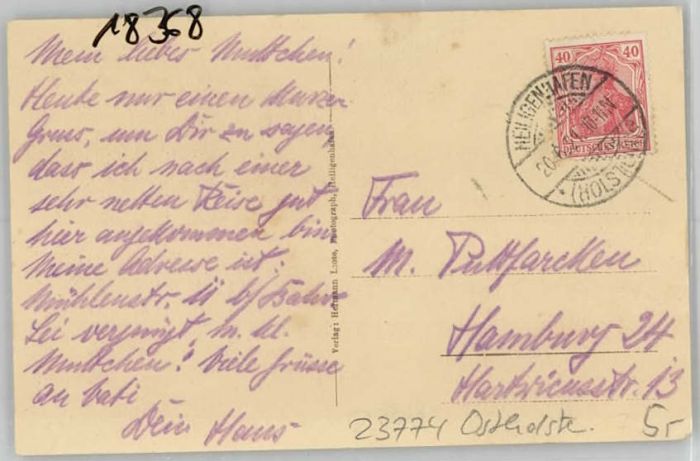 18368
Mein liebes Muttchen!
Heute nur einen kurzen
Gruss, um Dir zu sagen,
dass ich nach einer
sehr netten Reise gut
hier angekommen bin
Meine Adresse ist:
Mühlenstr. 11 b/
Sei vergnügt, m. kl.
Muttchen! Viele Grüsse
an Vati
Dein Hans
Verlag: Hermann Photograph, Heiligenhafen
40 40
DEUTSCHES REICH
HEILIGENHAFEN
(HOLSTEIN)
Frau
M. Puttfarcken
Hamburg 24
Hartwicusstr. 13
23774 Ostholste.
5,-